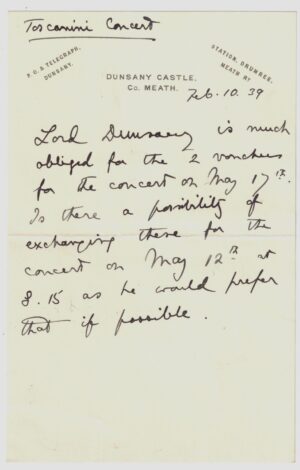 Toscanini Concert
P.O. & TELEGRAPH,
DUNSANY.
STATION, DRUMREE,
MEATH RY
DUNSANY CASTLE,
Co. MEATH.
Feb. 10. 39
Lord Dunsany is much
obliged for the 2 vouchers
for the concert on May 17th.
Is there a possibility of
exchanging these for the
concert on May 12th at
8.15 as he would prefer
that if possible.